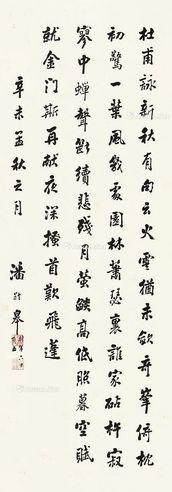 杜甫詠新秋有句云火雲猶未斂奇峯倚枕
初驚一葉風幾處園林蕭瑟裏誰家砧杵寂
寥中蟬聲斷續悲殘月螢燄高低照暮空賦
就金門斯再献夜深搔首歎飛蓬
辛未孟秋之月
潘齡皋